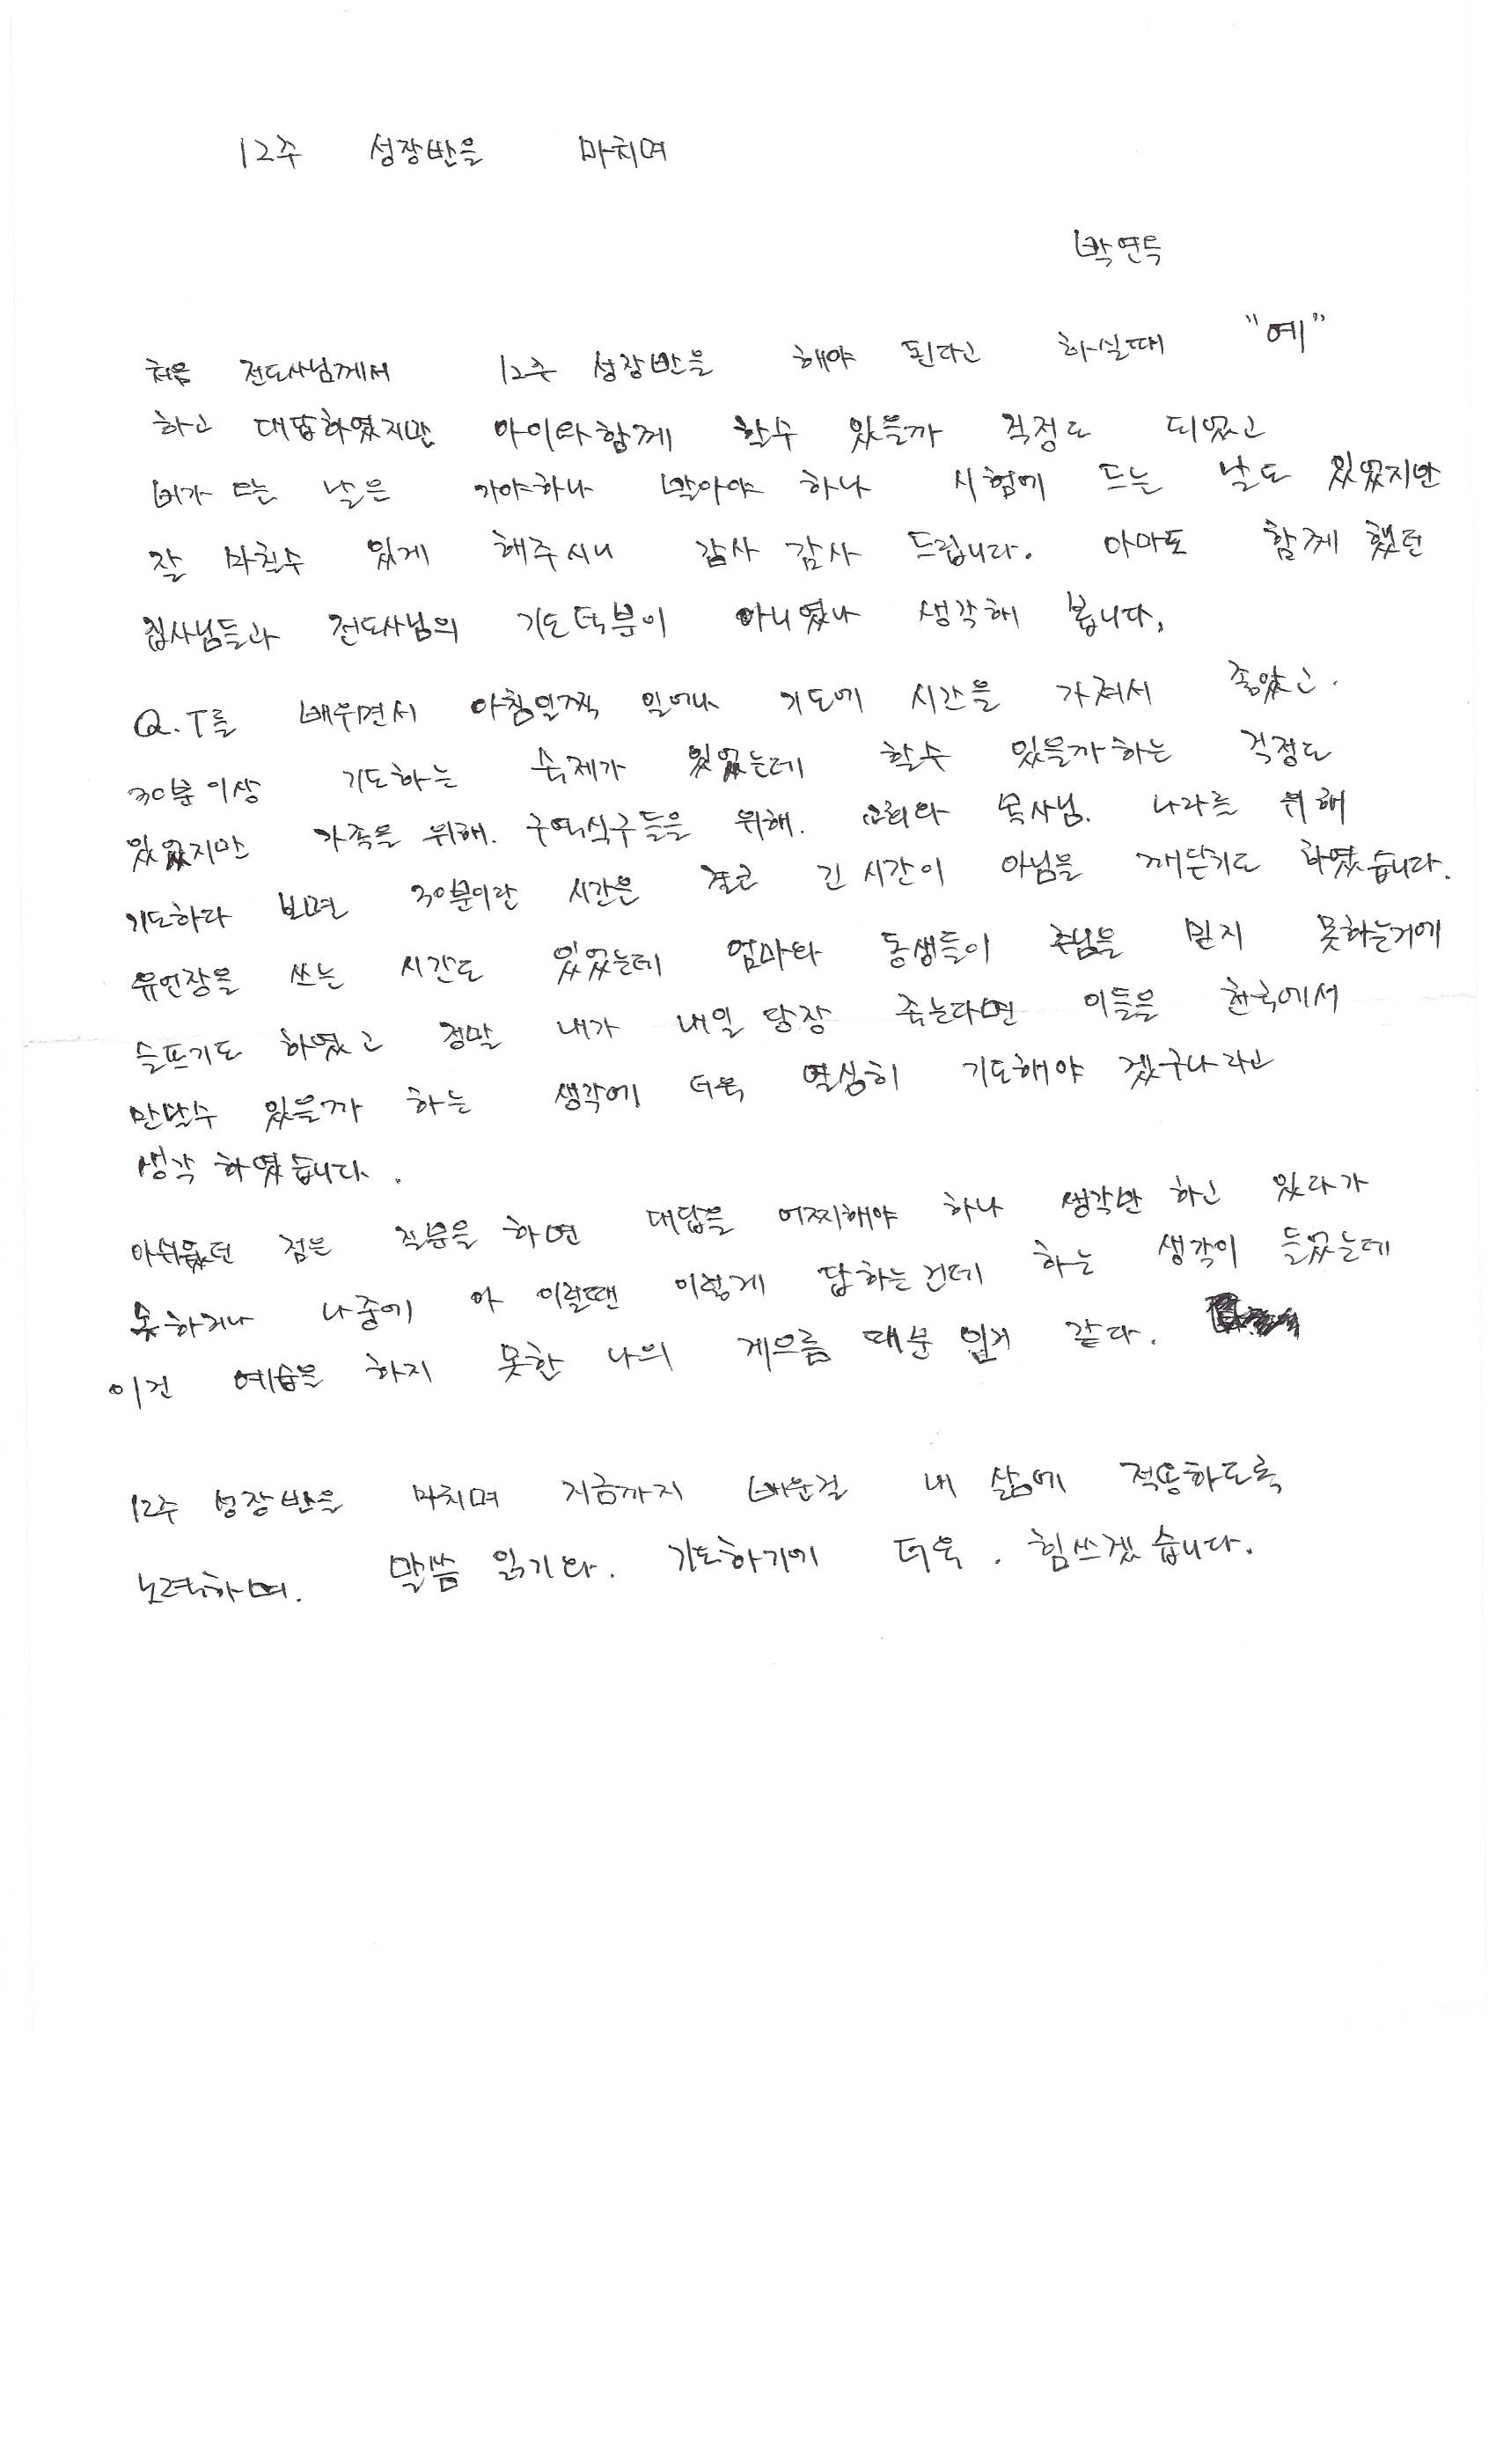 12주 성장반을 마치며
박연득
처음 전도사님께서 12주 성장반을 해야 된다고 하실때 "예"
하고 대답하였지만 아이와함께 할수 있을까 걱정도 되었고
비가 오는 날은 가야하나 말아야 하나 시험에 드는 날도 있었지만
잘 마칠수 있게 해주시니 감사 감사 드립니다. 아마도 함께 했던
집사님들과 전도사님의 기도덕분이 아니였나 생각해 봅니다.
Q.T를 배우면서 아침일찍 일어나 기도에 시간을 가져서 좋았고.
30분이상 기도하는 숙제가 있었는데 할수 있을까하는 걱정도
있었지만 가족을 위해. 구역식구들을 위해. 교회와 목사님. 나라를 위해
기도하다 보면 30분이란 시간은 결코 긴 시간이 아님을 깨닫기도 하였습니다.
유언장을 쓰는 시간도 있었는데 엄마와 동생들이 주님을 믿지 못하는거에
슬프기도 하였고 정말 내가 내일 당장 죽는다면 이들을 천국에서
만날수 있을까 하는 생각에 더욱 열심히 기도해야 겠구나라고
생각 하였습니다.
아쉬웠던 점은 질문을 하면 대답을 어찌해야 하나 생각만 하고 있다가
못하거나 나중에 아 이럴땐 이렇게 답하는건데 하는 생각이 들었는데
이건 예습을 하지 못한 나의 게으름 때문 일거 같다.
12주 성장반을 마치며 지금까지 배운걸 내 삶에 적용하도록
노력하며. 말씀 읽기와. 기도하기에 더욱. 힘쓰겠습니다.